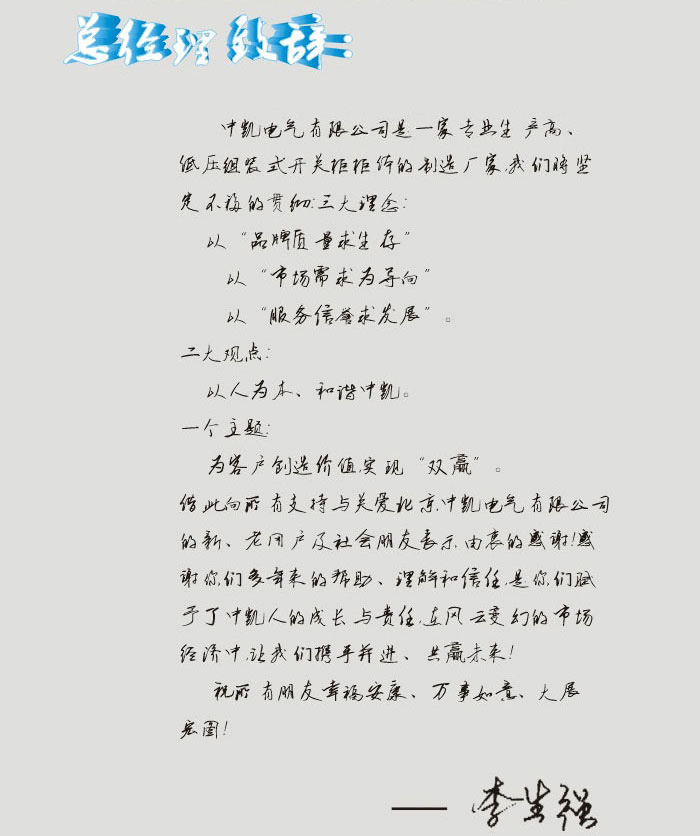 总经理致辞:
中凯电气有限公司是一家专业生产高、
低压组装式开关柜柜体的制造厂家,我们将坚
定不移的贯彻:三大理念:
以“品牌质量求生存”
以“市场需求为导向”
以“服务信誉求发展”。
二大观点:
以人为本、和谐中凯。
一个主题:
为客户创造价值,实现“双赢”。
借此向所有支持与关爱北京中凯电气有限公司
的新、老用户及社会朋友表示由衷的感谢!感
谢你们多年来的帮助、理解和信任,是你们赋
予了中凯人的成长与责任,在风云变幻的市场
经济中,让我们携手并进、共赢未来!
祝所有朋友幸福安康、万事如意、大展
宏图!
—— 李生强